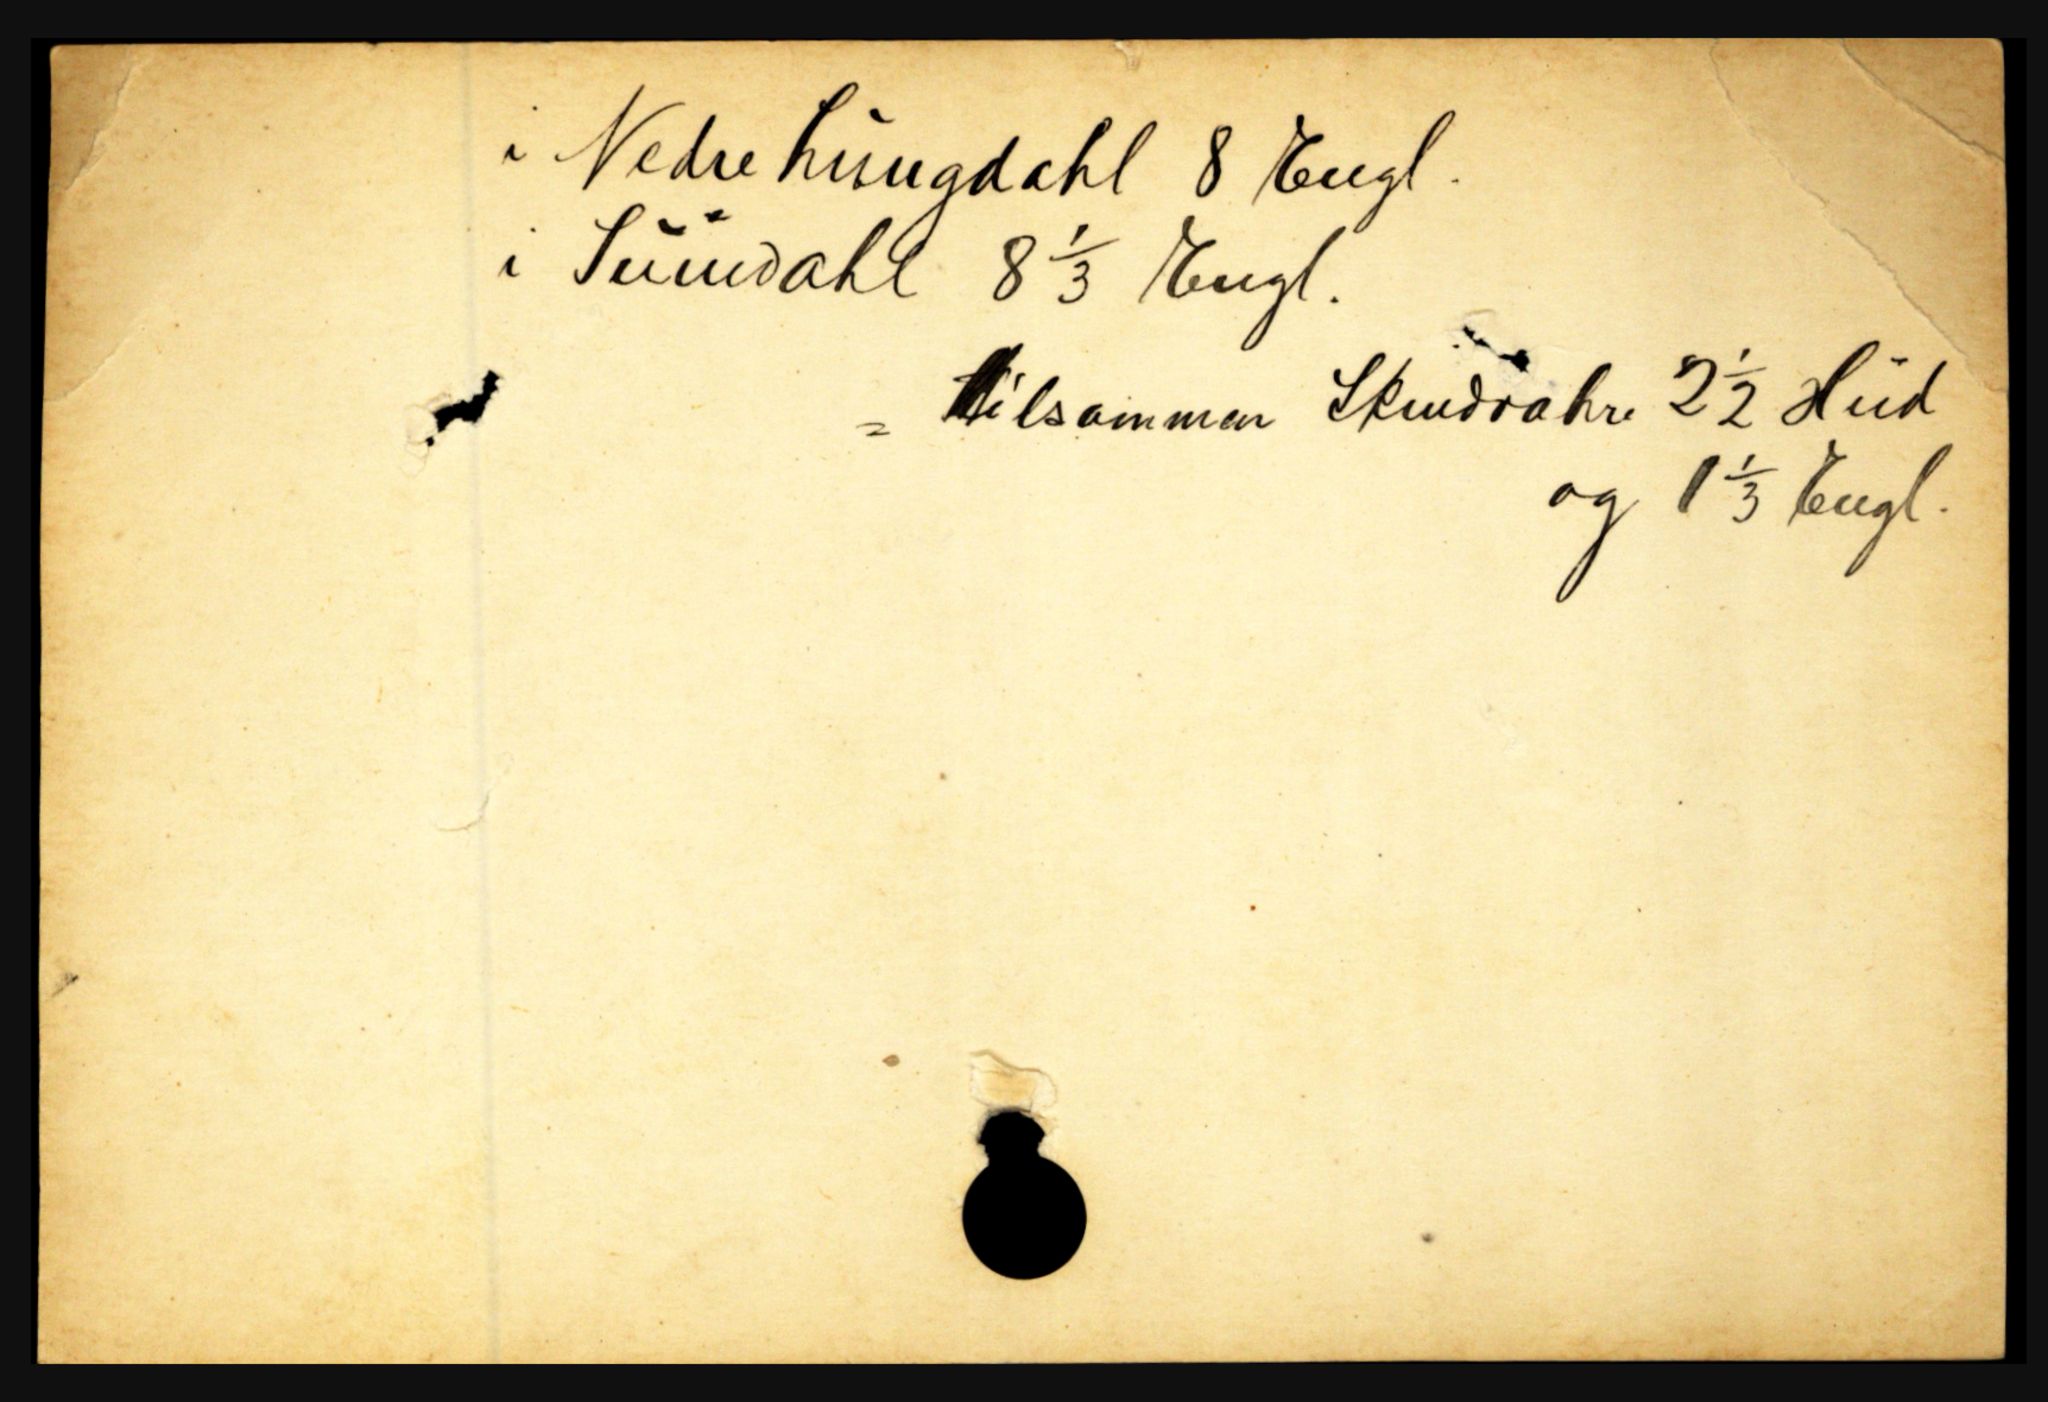 i Nedre Liungdahl 8 Engl.
i Suindahl 8 1/3 Engl.
= Tilsammen Skindvahre 2 1/2 Hud
og 1 1/3 Engl.